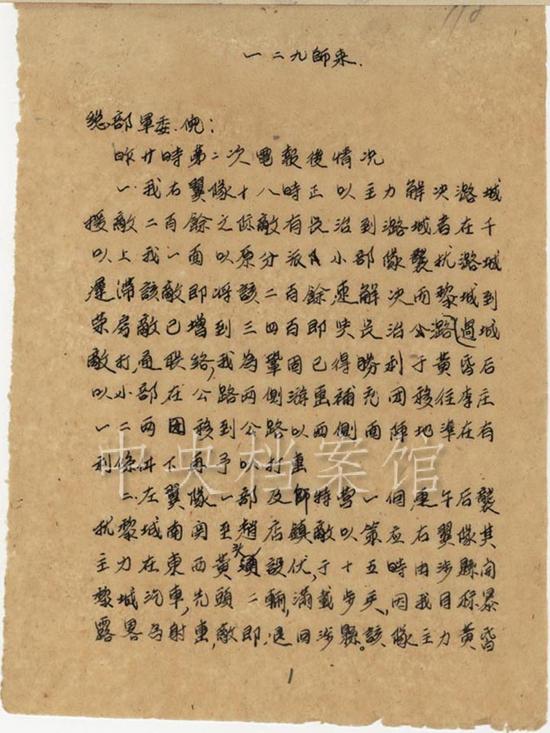 118
一二九師来.
总部軍委.倪:
昨廿时第二次電報後情况
一.我右翼隊十八時正以主力解决潞城
援敵二百餘之际敵有長治到潞城者在千
以上我一面以原分派小部隊襲扰潞城
遲滞該敵即将該二百餘速解决而黎城到
荣房敵已增到三四百即與長治公潞過城
敵打通联絡,我為鞏固已得勝利于黄昏后
以小部在公路两側游击補充团移住李庄
一二两团移到公路以西側面陣地準在有
利條件下再予以打击
二.左翼隊一部及師特营一個連午后襲
扰黎城南関至趙店鎮敵以策应右翼隊其
主力在東西黄头設伏,于十五時由涉縣向
黎城汽車,先頭二輛,滿載步兵,因我目标暴
露畧与射击,敵即退回涉縣.該隊主力黄昏
1
中央档案馆